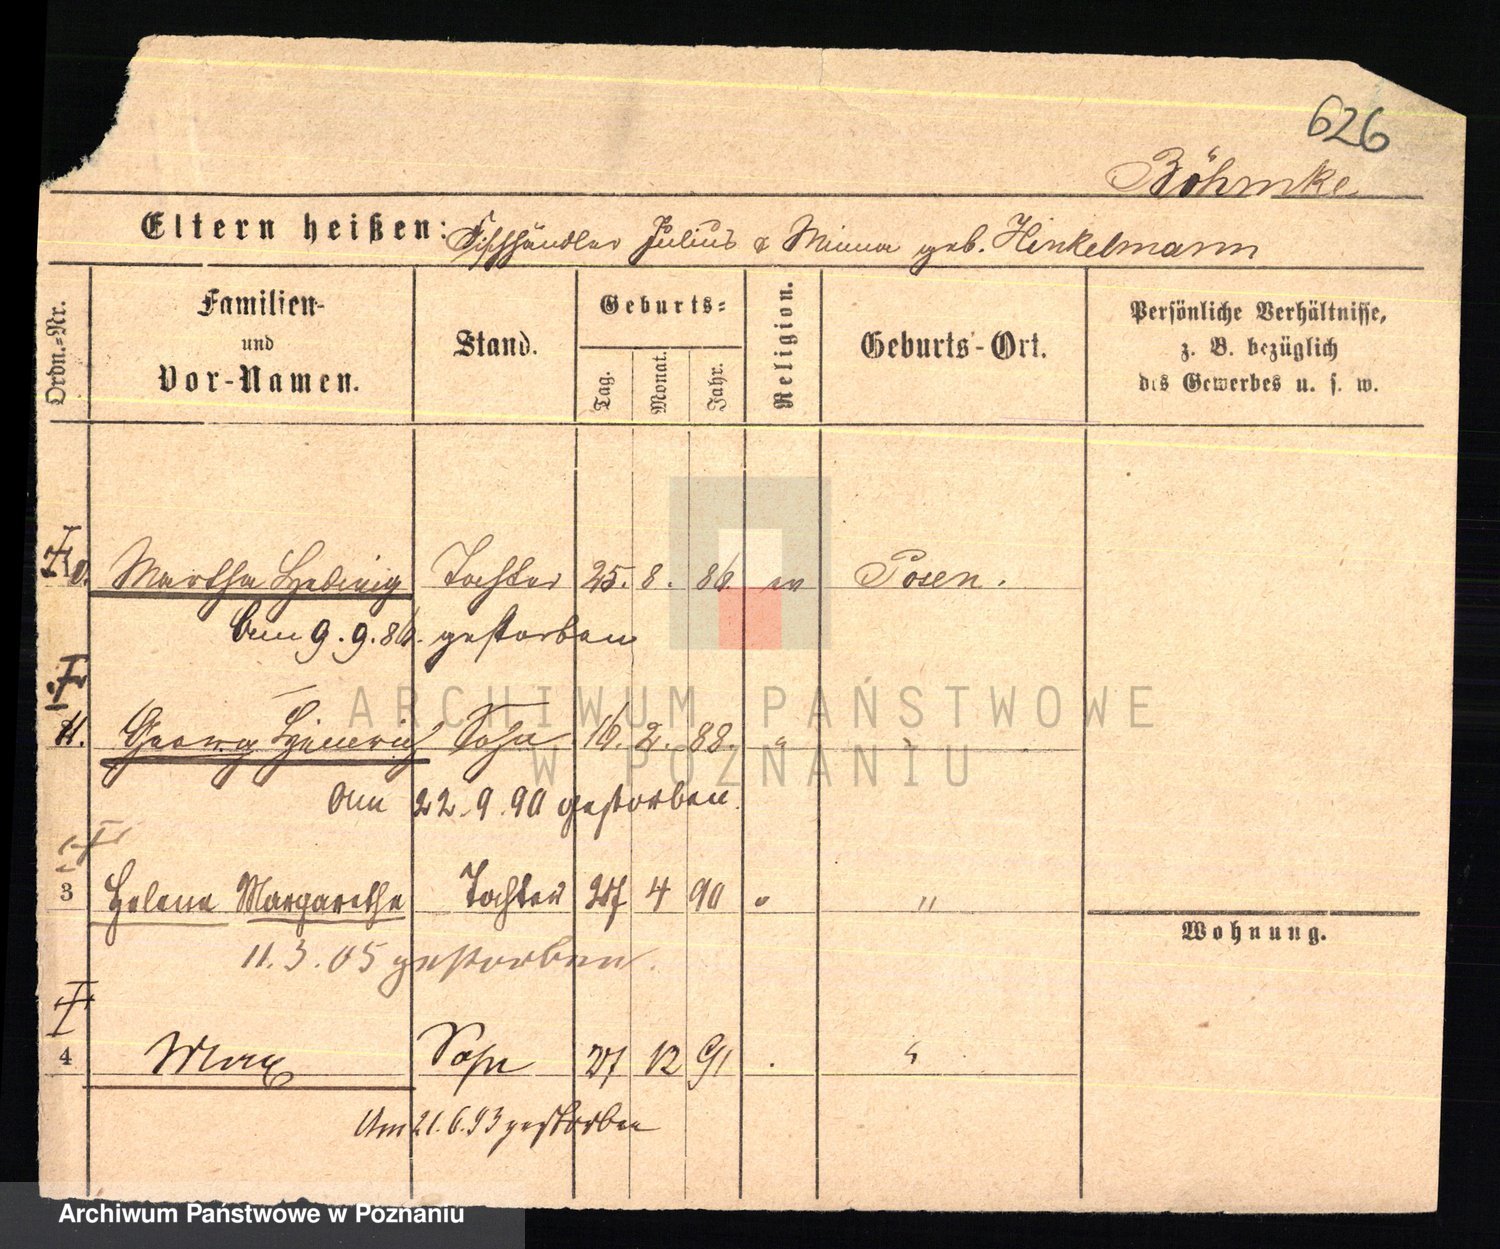 626
Böhmke
Eltern heißen: Fischhändler Julius & Minna geb. Hinkelmann
Ordn.-Nr.
Familien-
und
Vor-Namen.
Stand.
Geburts-
Tag.
Monat.
Jahr.
Religion.
Geburts-Ort.
Persönliche Verhältnisse,
z. B. bezüglich
des Gewerbes u. s. w.
Martha Hedwig Tochter 25. 8. 86. ev Posen.
Am 9.9.86. gestorben
ARCHIWUM PAŃSTWOWE
W POZNANIU
Georg Heinrich Sohn 16. 2. 88. " "
Am 22.9.90 gestorben.
3 Helene Margarethe Tochter 27 4 90 " "
Wohnung.
11.3.05 gestorben.
4 Max Sohn 27 12 91 "
Am 21.6.93 gestorben
Archiwum Państwowe w Poznaniu